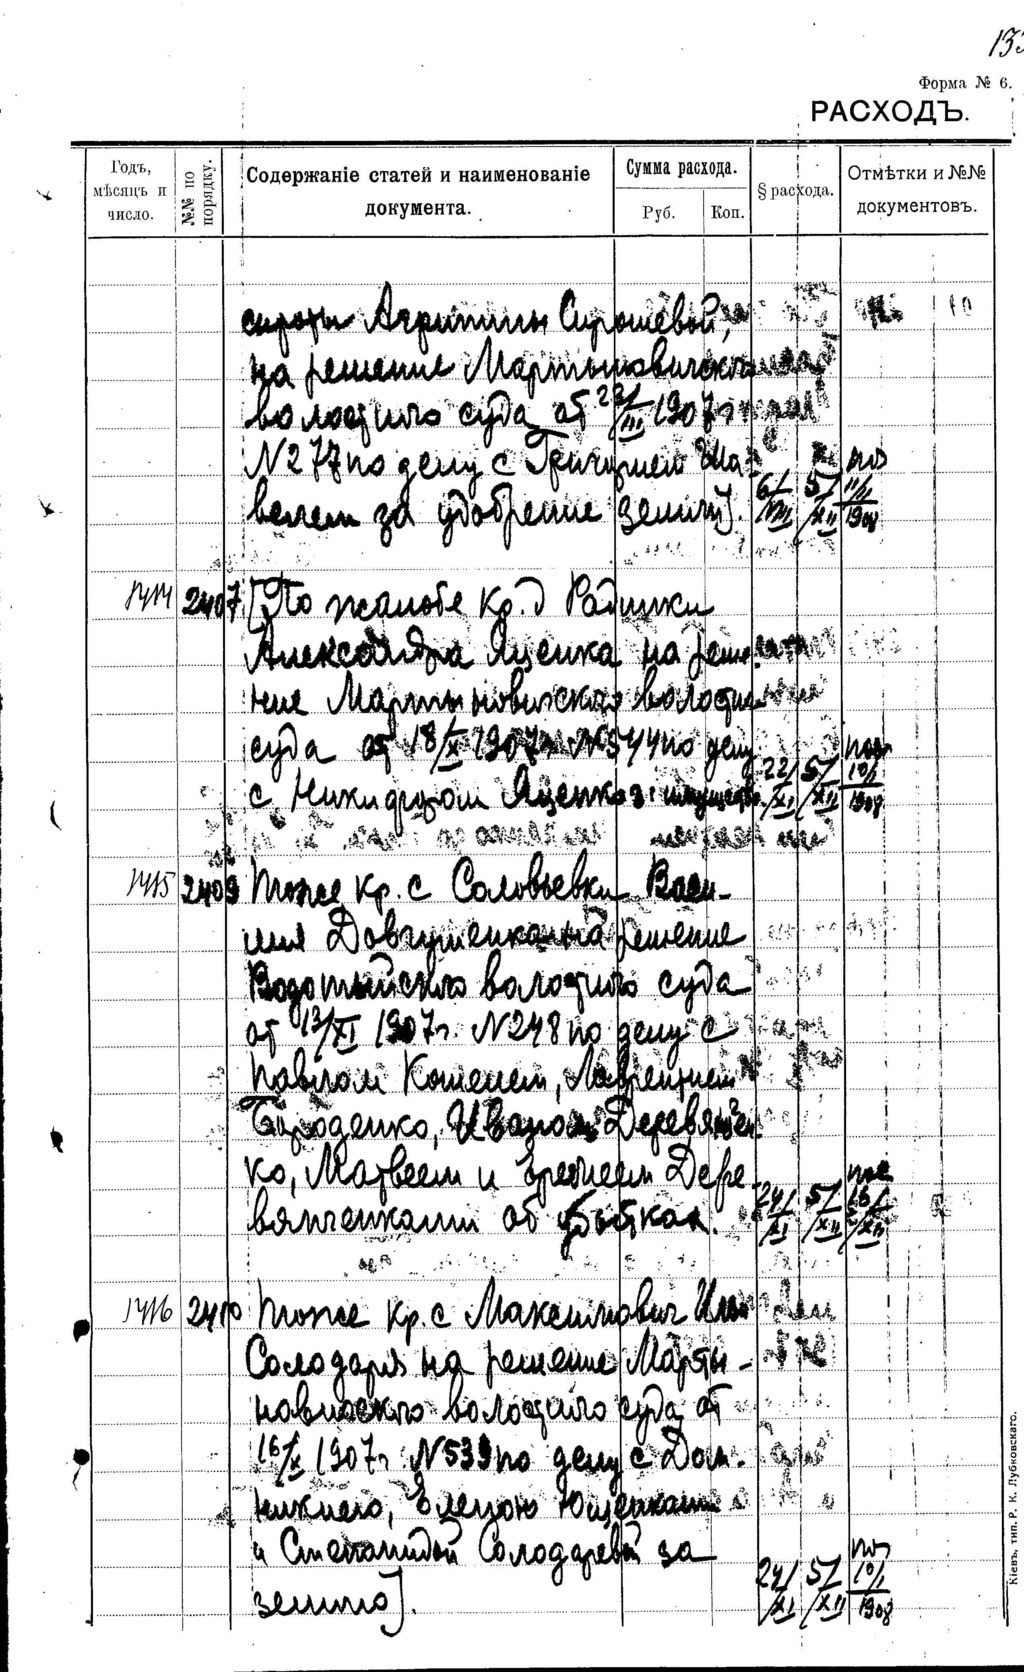 133
Форма № 6.
РАСХОДЪ.
Годъ, мѣсяцъ и число.
№№ по порядку.
Содержаніе статей и наименованіе документа.
Сумма расхода.
Руб.
Коп.
§ расхода.
Отмѣтки и №№ документовъ.
сироты Агрипины Сирошевой,
на решение Мартыновичского
волостного суда от 23/III 1907 г.
N 277 по делу с Григорием Ша-
велем за удобрение земли].
6/VIII 5/XII 11/II 1908
1414 2407 [По жалобе кр. д Радинки
Александра Яценка на реше-
ние Мартыновичского волостн
суда от 18/X 1907 г. N 544 по делу
с Никифором Яценко з
22/XI 5/XII 10/I 1908
1415 2409 тоже кр. с Соловьевки Васи-
лия Довгушенка на решение
Водотыйского волостного суда
от 13/XI 1907 г. N 248 по делу с
Павлом Кошелем, Лаврентием
Бороденко, Иваном Деревянчен
ко, Матвеем и Ерофеем Дере-
вянченками об убытках.
24/XI 5/XII 16/XII
1416 2410 тоже кр. с Максимович Ильи
Солодаря на решение Марты-
новичского волостного суда от
16/X 1907 г. N 539 по делу с Дом-
никиею, Еленою Ющенками
и Степанидой Солодаревой за
землю].
24/XI 5/XII 10/I 1908
Кіевъ, тип. Р. К. Лубковскаго.